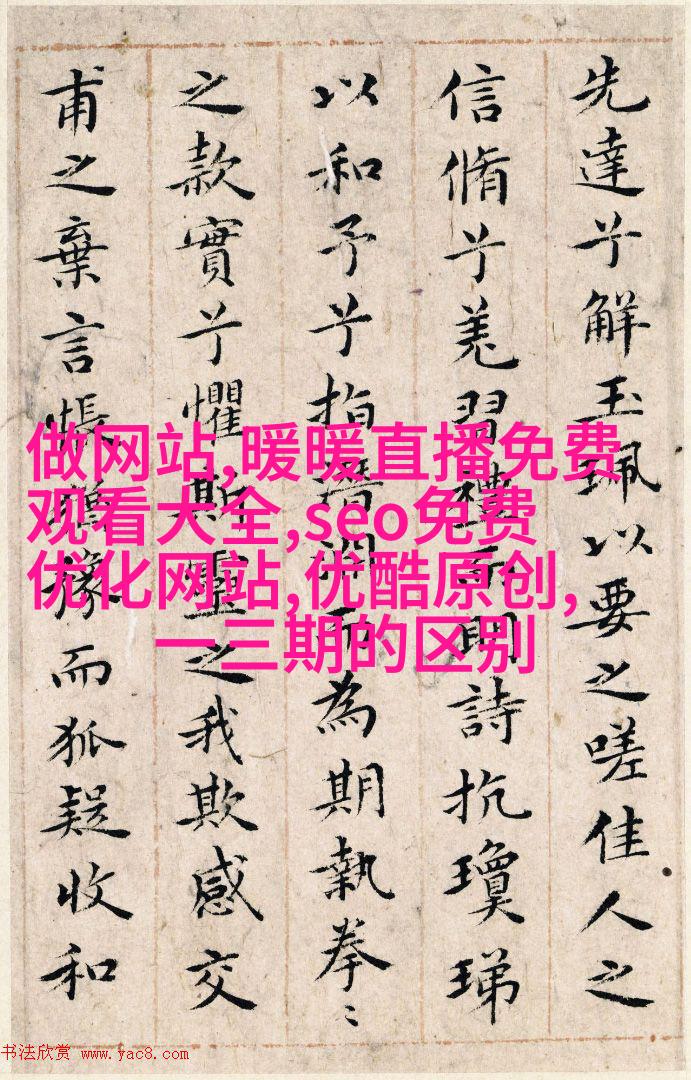 先達兮解玉珮以要之嗟佳人之
信脩兮羗習禮而明詩抗瓊珶
以和予兮指潛淵而為期執拳〻
之款實兮懼斯靈之我欺感交
甫之棄言悵猶豫而狐疑收和
做网站,暖暖直播免费
观看大全,seo免费
优化网站,优酷原创,
一三期的区别
书法欣赏 www.yac8.com